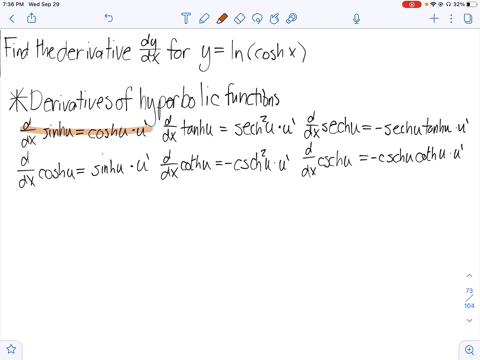 7:36 PM Wed Sep 29
32%
Find the derivative dy/dx for y = ln(cosh x)
* Derivatives of hyperbolic functions
d/dx sinhu = coshu · u' d/dx tanhu = sech²u · u' d/dx sechu = -sechu tanhu · u'
d/dx coshu = sinhu · u' d/dx cothu = -csch²u · u' d/dx cschu = -cschu cothu · u'
73
/
104